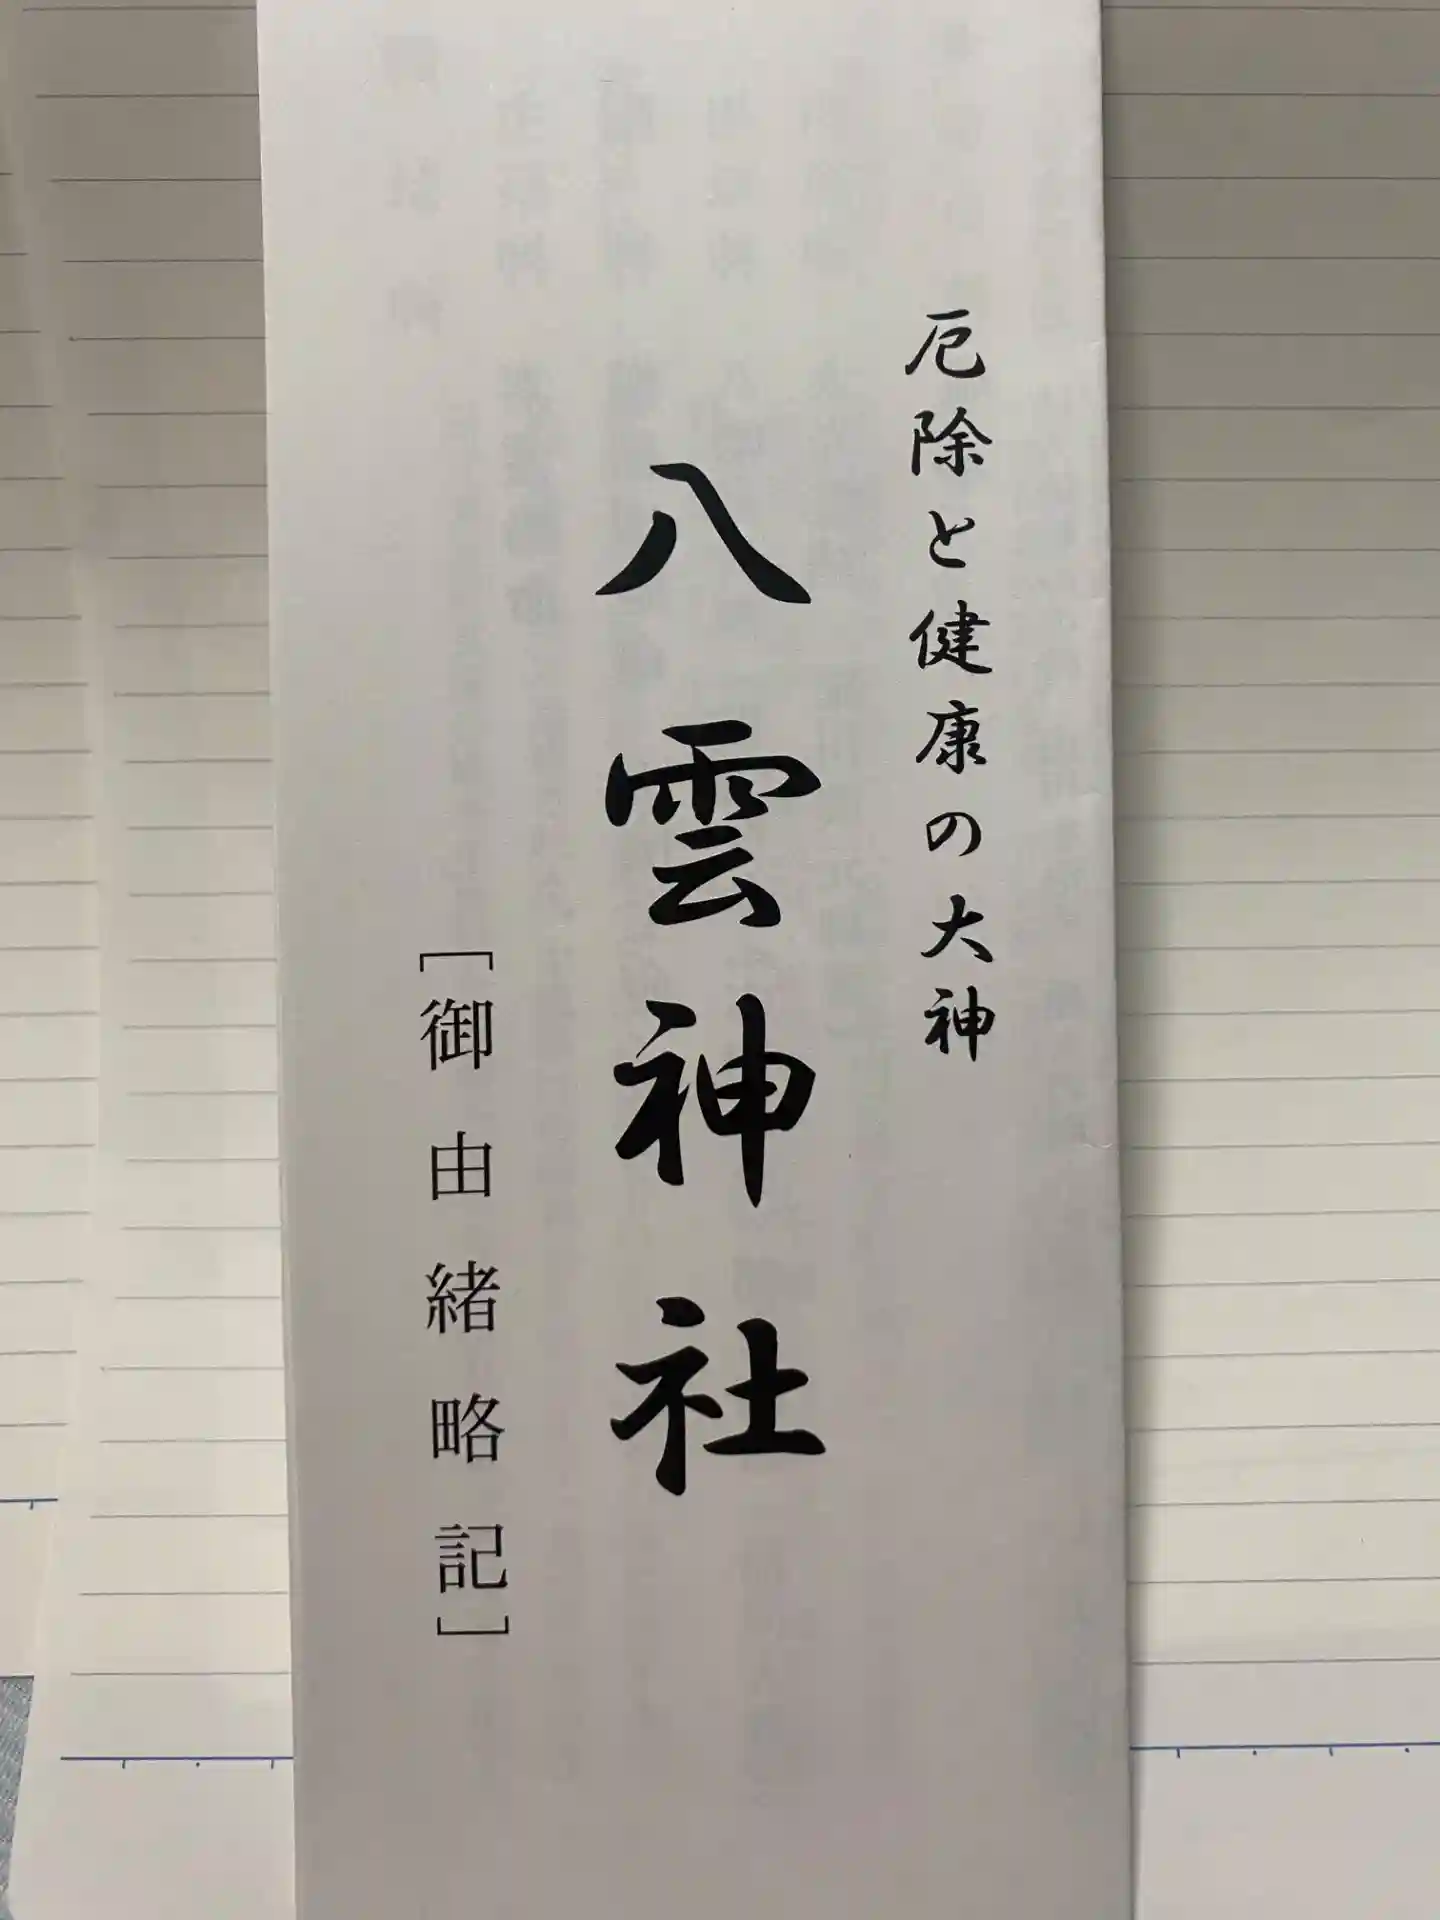 厄除と健康の大神
八雲神社
［御由緒略記］